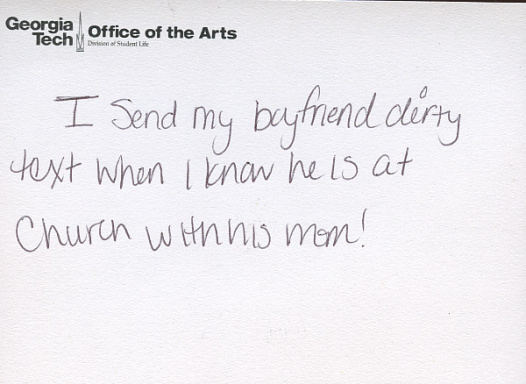 Georgia Tech Office of the Arts
Division of Student Life
I Send my boyfriend dirty
text when I know he is at
Church with his mom!